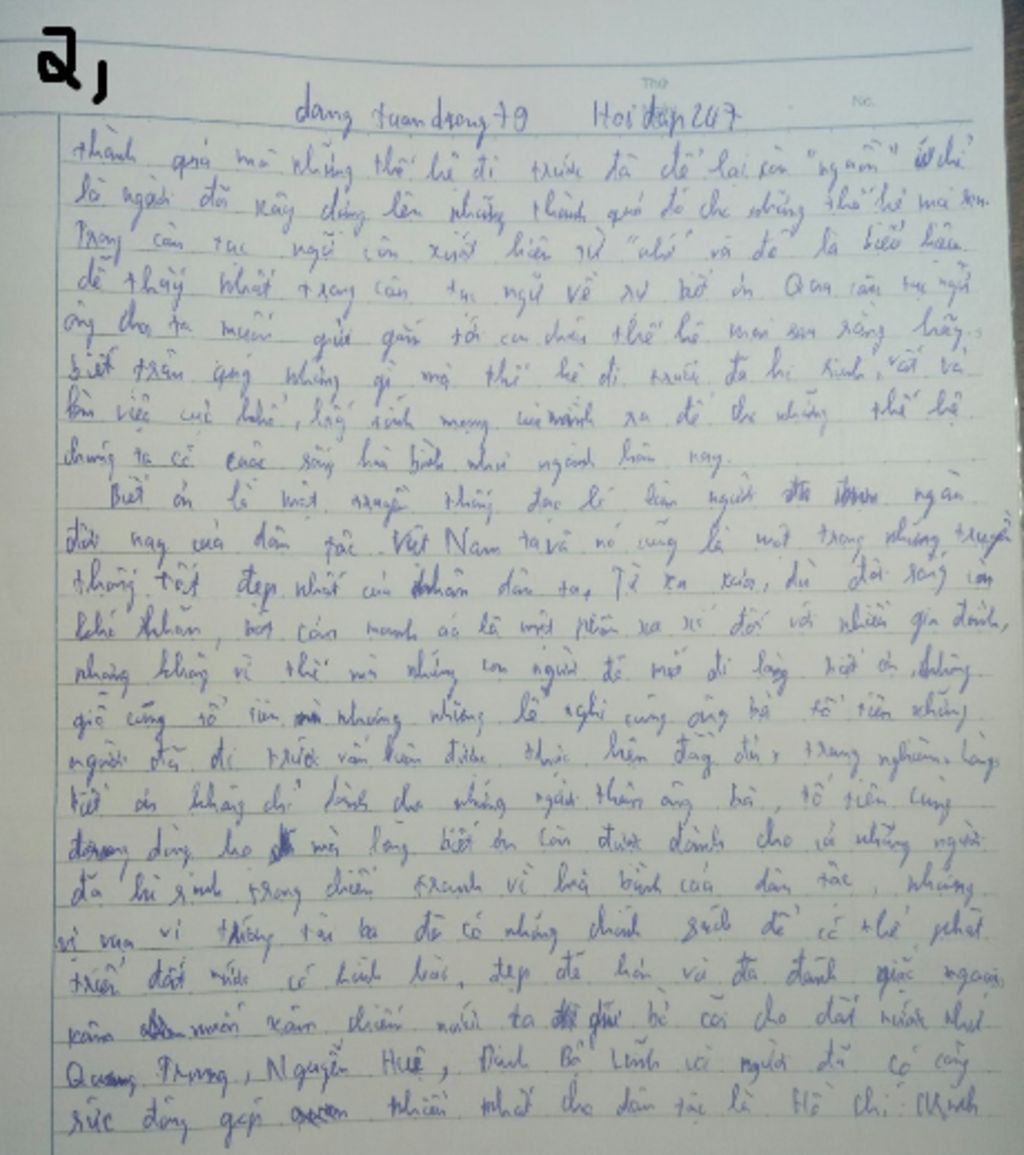 2,
dang tuandrong +9 Hoi đáp 247
Thứ
No.
thành quả mà những thế hệ đi trước đã để lại còn "nguồn" chỉ
là người đã xây dựng lên những thành quả đó cho những thế hệ mai sau.
Trong câu tục ngữ còn xuất hiện từ "nhớ" và đó là biểu hiện
dễ thấy nhất trong câu tục ngữ về sự biết ơn Qua câu tục ngữ
ông cha ta muốn gửi gắm tới con cháu thế hệ mai sau rằng hãy
biết trân quý những gì mà thế hệ đi trước đã hi sinh, vất vả
làm việc cực khổ, lấy tính mạng của mình ra để cho những thế hệ
chúng ta có cuộc sống hoà bình như ngành hôm nay.
Biết ơn là một truyền thống đạo lí làm người ngàn
đời nay của dân tộc Việt Nam ta và nó cũng là một trong những truyền
thống tốt đẹp nhất của nhân dân ta, Từ xa xưa, dù đời sống còn
khó khăn, cơm là một phần xa xỉ đối với nhiều gia đình,
nhưng không vì thế mà những con người đó mất đi lòng biết ơn, những
giỗ cúng tổ tiên nhưng những lễ nghi cúng ông bà tổ tiên những
người đã đi trước vẫn luôn được thực hiện đầy đủ, trang nghiêm. Lòng
biết ơn không chỉ dành cho những người thân ông bà, tổ tiên cùng
dòng họ mà lòng biết ơn còn được dành cho cả những người
đã hi sinh trong chiến tranh vì hoà bình của dân tộc, những
vị vua vì tướng tài ba đã có những chính sách để có thể phát
triển đất nước có hình hài, đẹp đẽ hơn và đã đánh giặc ngoại
xâm muốn xâm chiếm nước ta giữ bờ cõi cho đất nước như
Quang Trung, Nguyễn Huệ, Đinh Bộ Lĩnh và người đã có công
sức đóng góp nhiều nhất cho dân tộc là Hồ Chí Minh